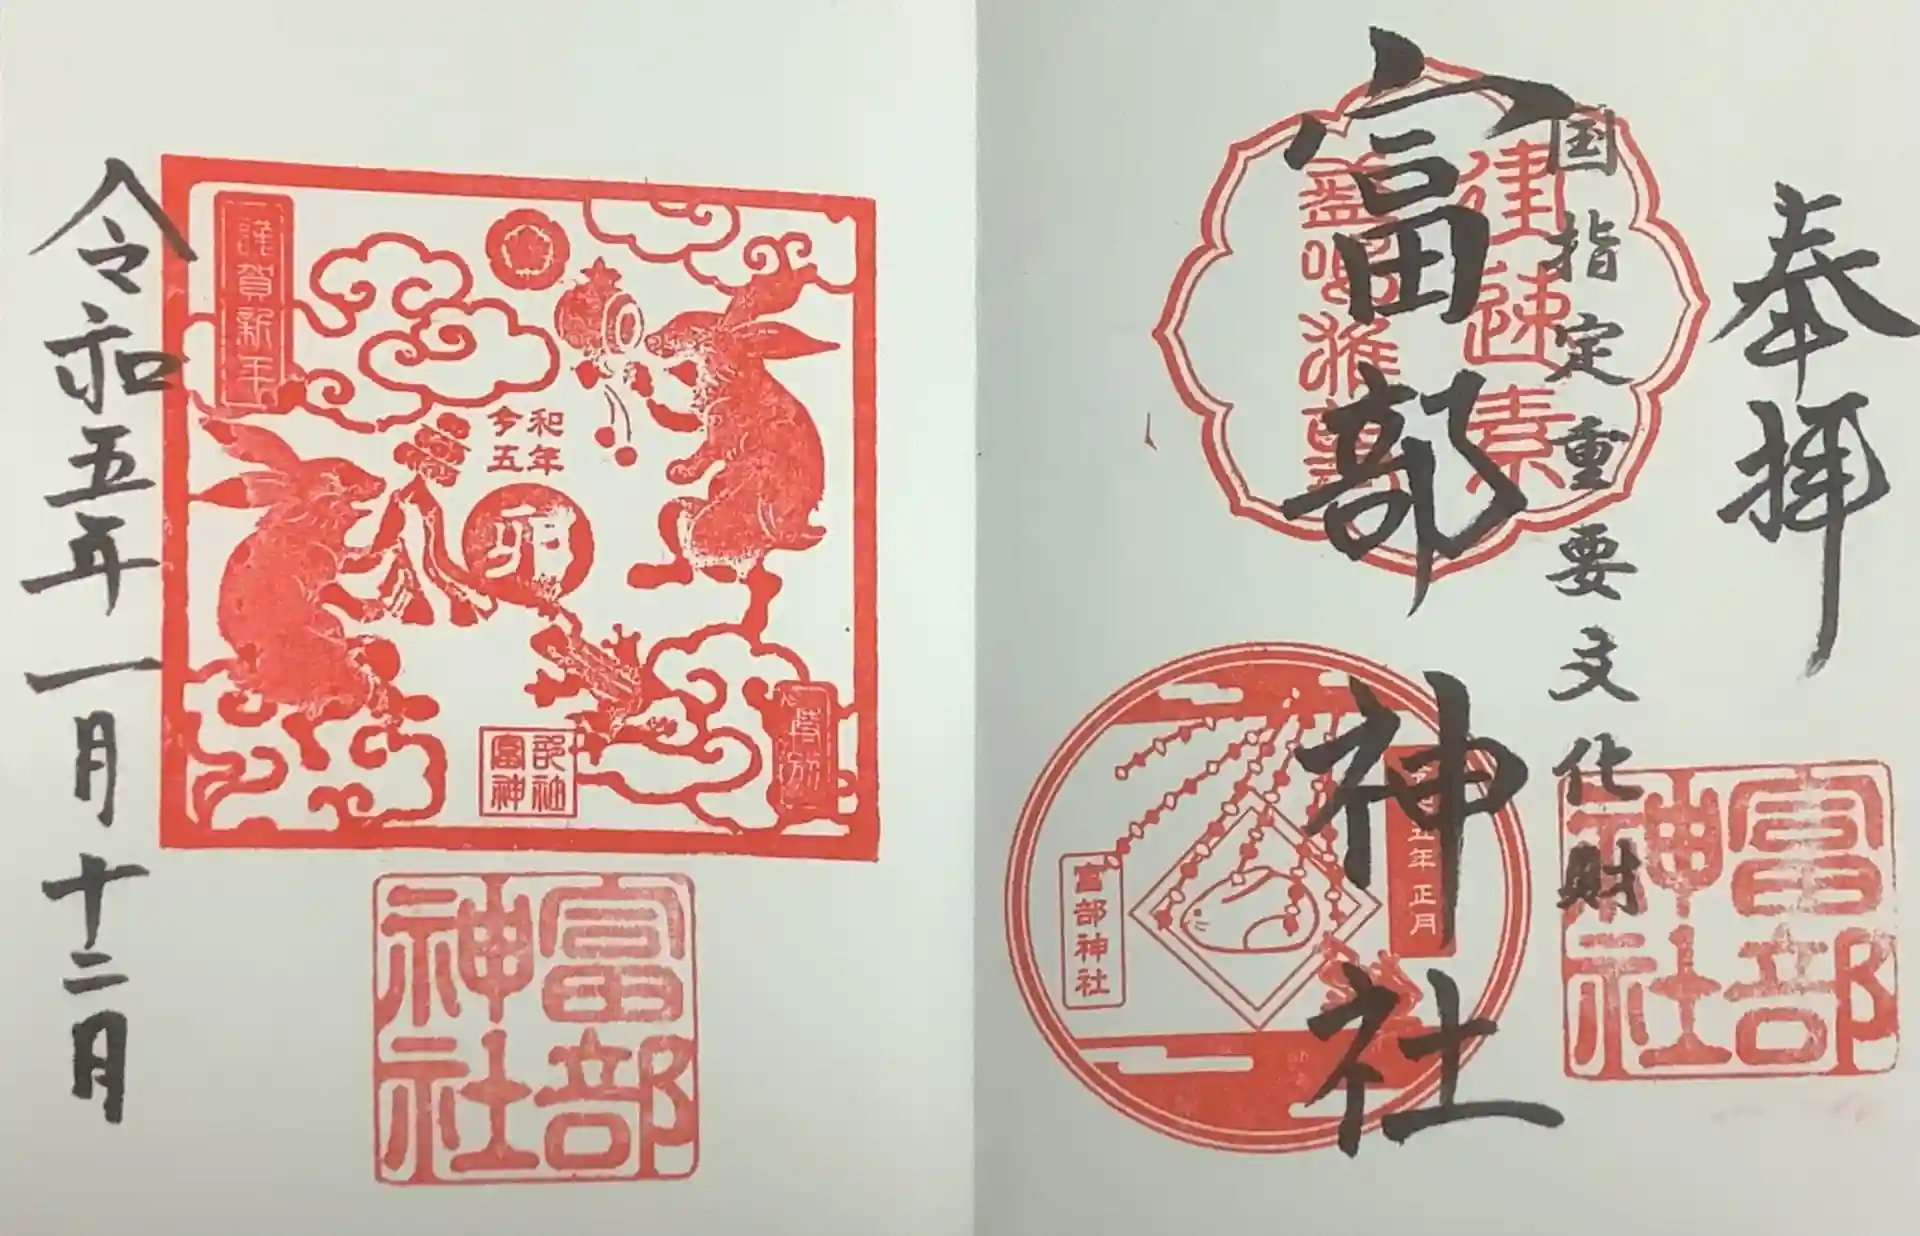 奉拝
国指定重要文化財
建速素
富部神社
富部神社
五年正月
富部神社
謹賀新年
令和
五年
卯
特別
富部神社
富部
神社
令和五年一月十二月